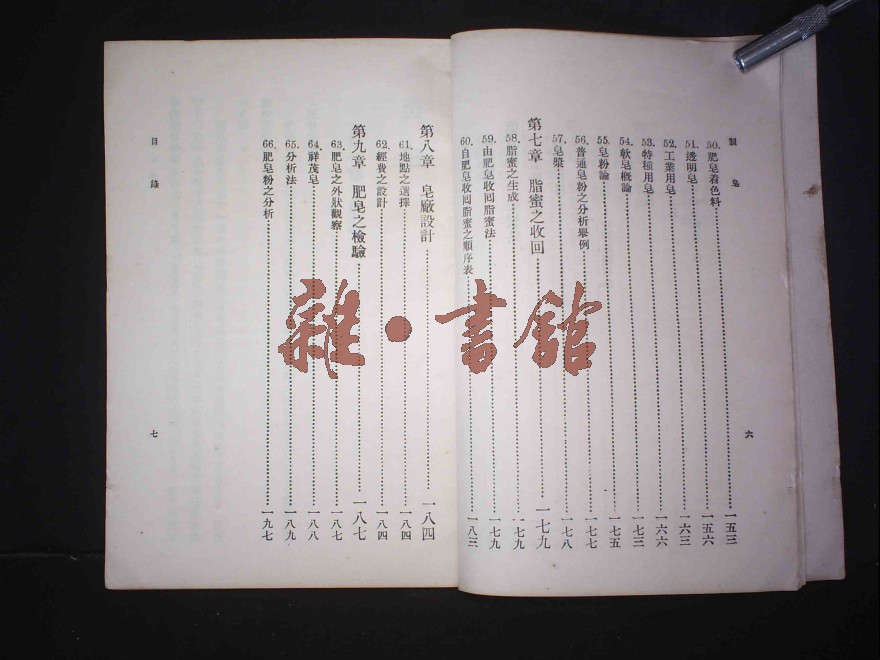 製皂
50.肥皂着色料……一五三
51.透明皂……一五六
52.工業用皂……一六三
53.特種用皂……一六六
54.軟皂概論……一七三
55.皂粉論……一七五
56.普通皂粉之分析舉例……一七七
57.皂漿……一七八
第七章 脂蜜之收回……一七九
58.脂蜜之生成……一七九
59.由肥皂收回脂蜜法……一七九
60.自肥皂收回脂蜜之順序表……一八三
六
目錄
第八章 皂廠設計……一八四
61.地點之選擇……一八四
62.經費之設計……一八四
第九章 肥皂之檢驗……一八七
63.肥皂之外狀觀察……一八七
64.祥茂皂……一八八
65.分析法……一八九
66.肥皂粉之分析……一九七
七
雜·書館